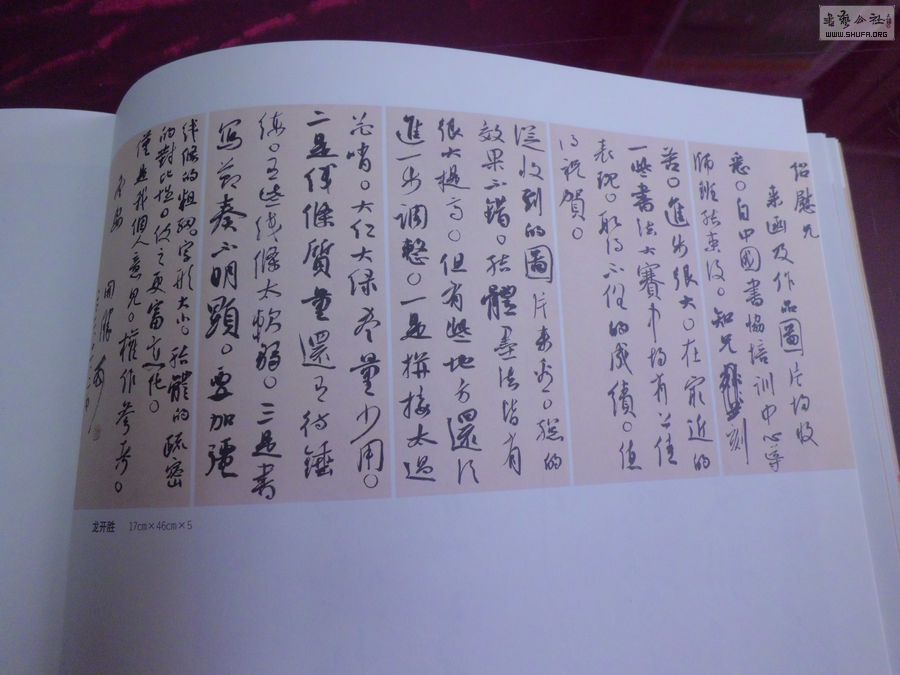 绍慰兄
来函及作品圖片均收
悉。自中國書協培训中心導
师班结束後。知兄非常刻
苦。進步很大。在最近的
一些書法大賽中均有上佳
表现。取得不俗的成绩。值
得祝賀。
從收到的圖片来看。總的
效果不錯。结體墨法皆有
很大提高。但有些地方還須
進一步調整。一是拼接太過
花哨。大红大绿尽量少用。
二是线條質量還有待錘
练。有些线條太軟弱。三是書
寫節奏不明顯。要加强
线條的粗细。字形大小。结體的疏密
的對比性。使之更富变化。
僅是我個人意見。權作參考。
開勝
龙开胜 17cm×46cm×5
WWW.SHUFA.ORG